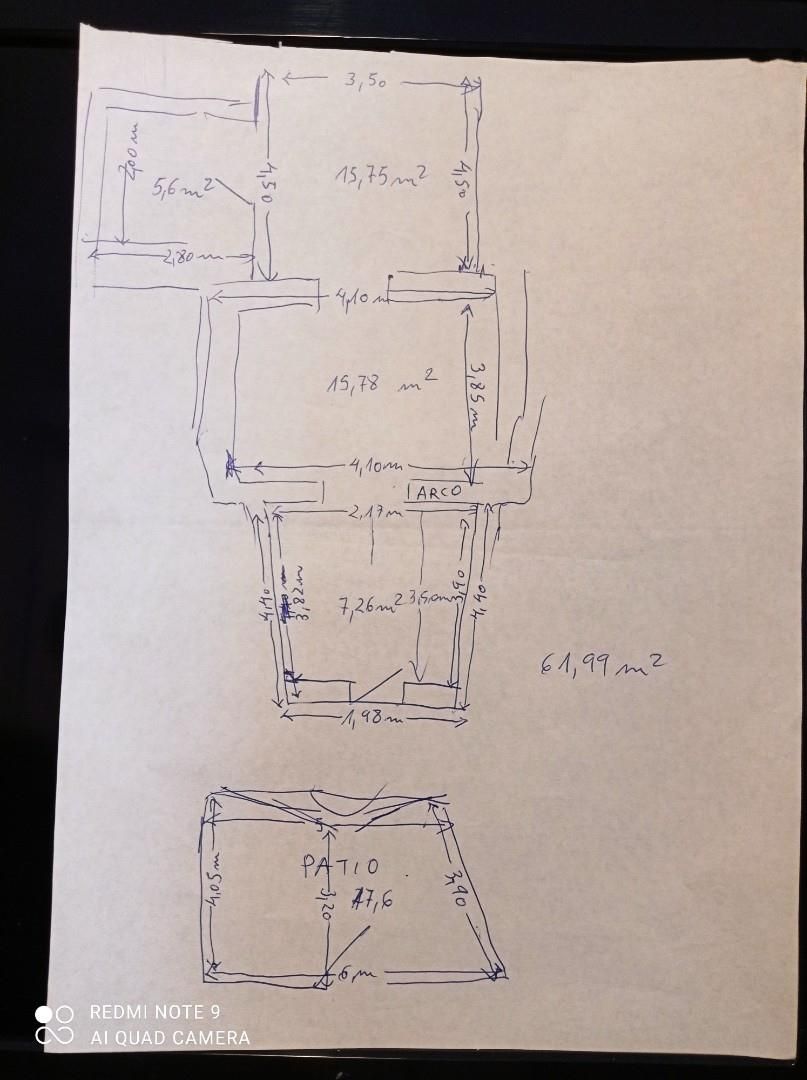 3,50
2,00 m
5,6 m²
4,50
15,75 m²
4,50
2,80 m
4,10 m
15,78 m²
3,85 m
4,10 m
ARCO
2,17 m
4,40
3,82 m
7,26 m²
3,90
4,40
61,99 m²
1,98 m
PATIO
4,05 m
3,20
17,6
3,90
6, m
REDMI NOTE 9
AI QUAD CAMERA